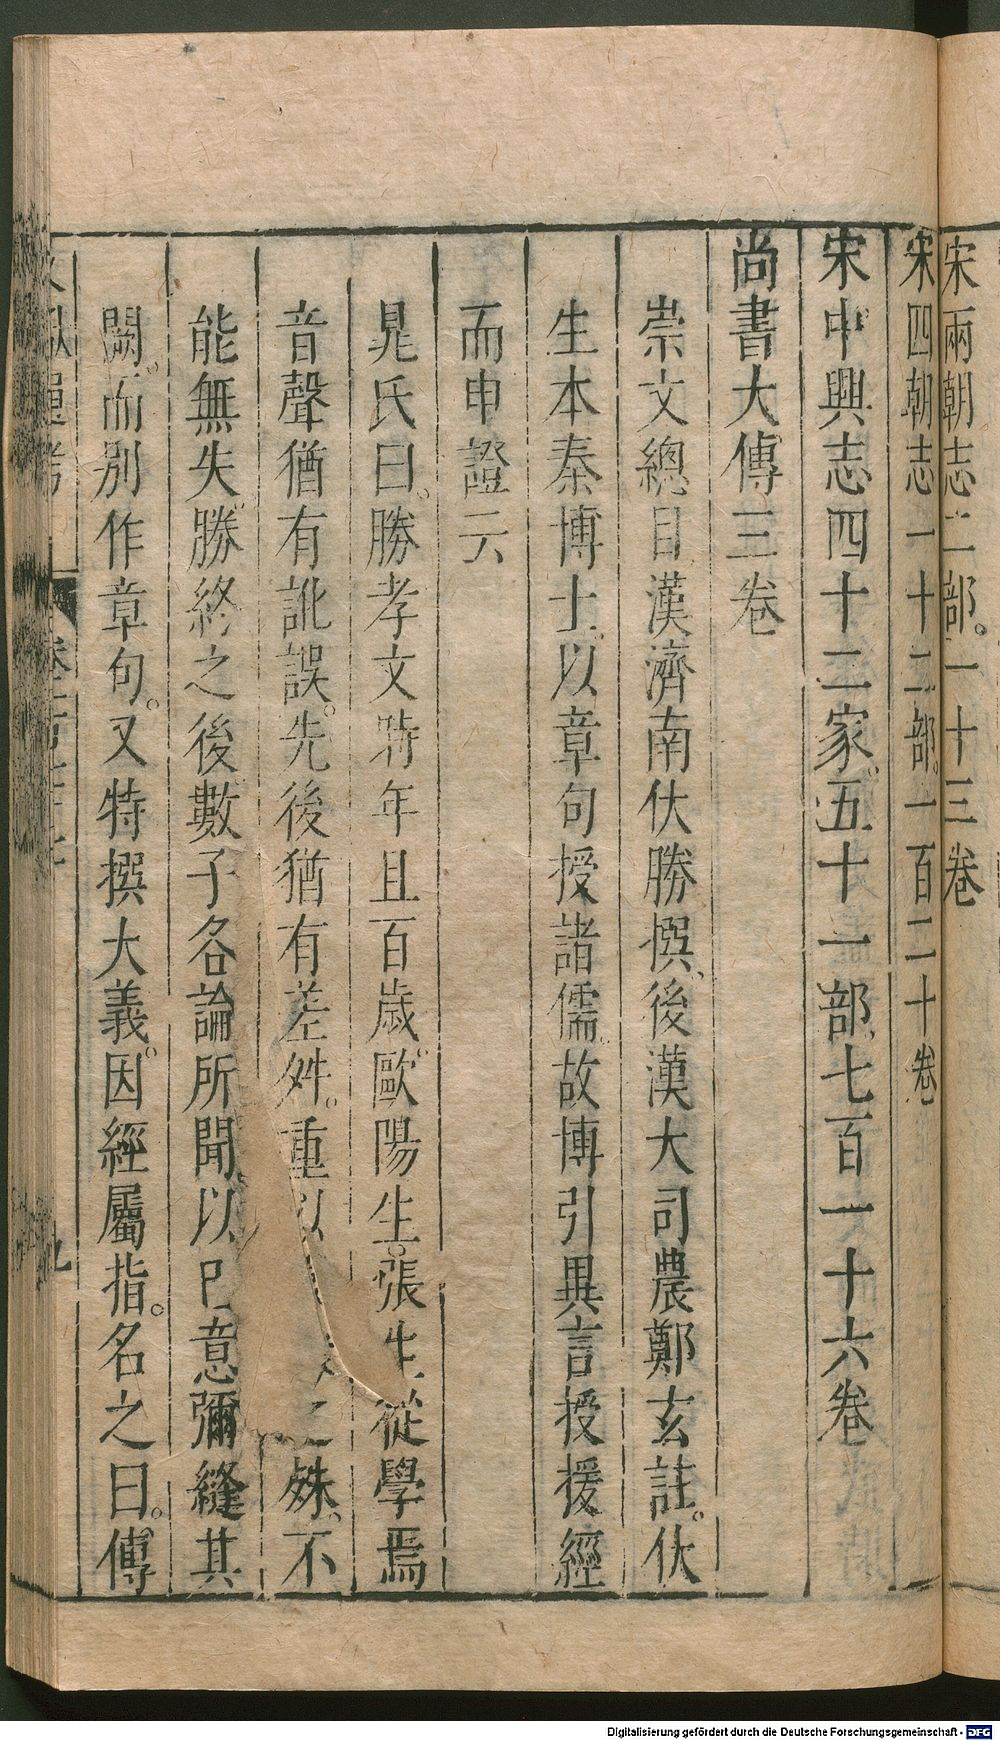 宋兩朝志二部。一十三卷
宋四朝志一十二部。一百二十卷
宋中興志四十二家。五十一部。七百一十六卷
尚書大傳三卷
崇文總目漢濟南伏勝撰、後漢大司農鄭玄註。伏
生本秦博士。以章句授諸儒。故博引異言授援經
而申證云
晁氏曰。勝孝文時年且百歲。歐陽生。張生從學焉
音聲猶有訛誤。先後猶有差舛。重以之殊、不
能無失。勝終之後。數子各論所聞。以巳意彌縫其
闕。而別作章句。又特撰大義。因經屬指。名之曰。傳
九
Digitalisierung gefördert durch die Deutsche Forschungsgemeinschaft - DFG